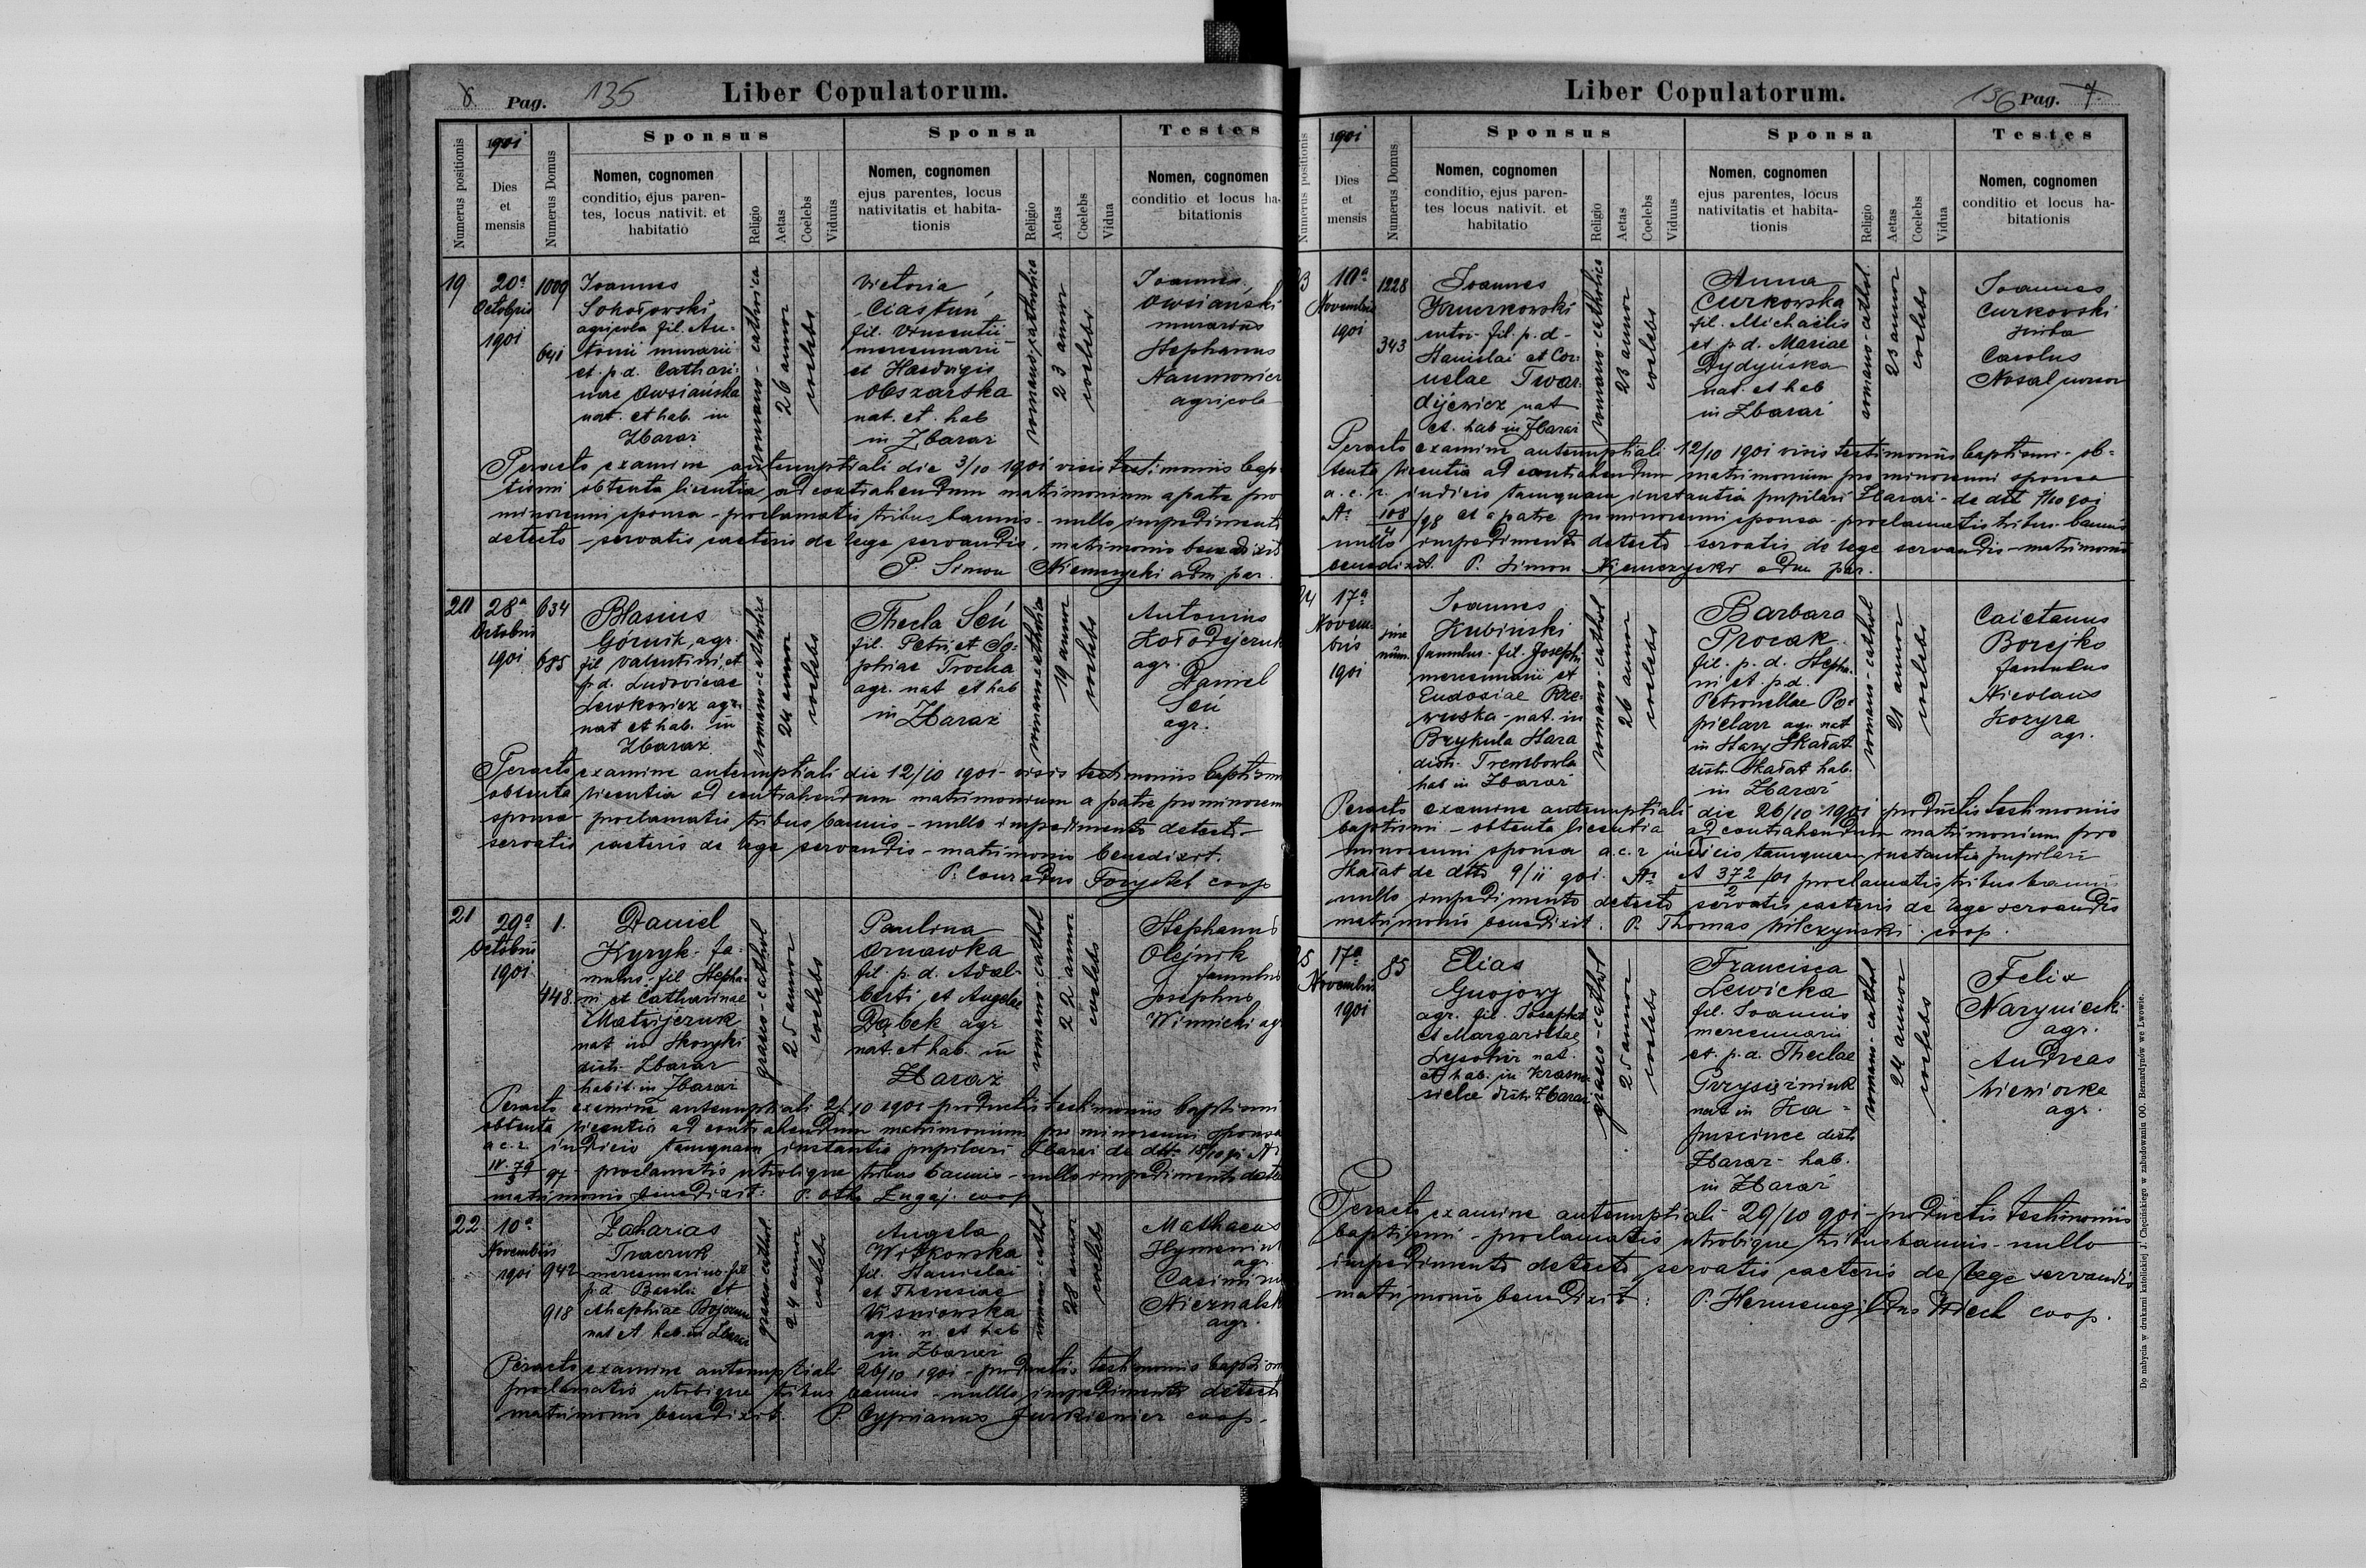 8 Pag. 135 Liber Copulatorum.
Numerus positionis
1901
Dies
et
mensis
Numerus Domus
Sponsus
Nomen, cognomen
conditio, ejus paren-
tes, locus nativit. et
habitatio
Religio
Aetas
Coelebs
Viduus
Sponsa
Nomen, cognomen
ejus parentes, locus
nativitatis et habita-
tionis
Religio
Aetas
Coelebs
Vidua
Testes
Nomen, cognomen
conditio et locus ha-
bitationis
19
20a
Octobris
1901
1009
641
Joannes
Sokołowski
agricola fil. An-
tonii murarii
et p.d. Cathari-
nae Owsiańska
nat. et hab. in
Zbaraż
romano-catholica
26 annor
coelebs
Victoria
Ciastuń
fil. Vincentii
mercenarii
et Hedvigis
Obszarska
nat. et hab
in Zbaraż
romano-catholica
23 annor
coelebs
Joannes
Owsiański
murarius
Stephanus
Naumowicz
agricola
Peracto examine antenuptiali die 3/10 1901 visis testimoniis bap-
tismi obtenta licentia ad contrahendum matrimonium a patre pro
minorenni sponsa - proclamatis tribus bannis - nullo impedimento
detecto - servatis caeteris de lege servandis, matrimonio benedixit
P. Simon Niemczycki adm. par.
20
28a
Octobris
1901
634
685
Blasius
Górnik, agr.
fil Valentini, et
p.d. Ludovicae
Lewkowicz agr.
nat et hab. in
Zbaraż
romano-catholica
24 annor
coelebs
Thecla Seń
fil. Petri, et So-
phiae Trocha
agr. nat et hab
in Zbaraż
romano-catholica
19 annor
coelebs
Antonius
Kołodijczuk
agr.
Daniel
Seń
agr.
Peracto examine antenuptiali die 12/10 1901 - visis testimoniis baptismi
obtenta licentia ad contrahendum matrimonium a patre pro minoren
sponsa - proclamatis tribus bannis - nullo impedimento detecto -
servatis caeteris de lege servandis - matrimonio benedixit.
P. Conradus coop
21
29a
Octobris
1901
1.
448.
Daniel
Kyryk - fa-
mulus - fil Stepha-
ni et Catharinae
Matwijczuk
nat in
distr. Zbaraż
habit. in Zbaraż
graeco-cathol
25 annor
coelebs
Paulina
fil. p.d. Adal-
berti, et Angelae
Dąbek agr
nat. et hab. in
Zbaraż
romano-cathol
22 annor
coelebs
Stephanus
Olejnik
famulus
Josephus
Winnicki agr
Peracto examine antenuptiali 21/10 1901 productis testimoniis baptismi
obtenta licentia ad contrahendum matrimonium pro minorenni sponsa
a c.r. iudicio tamquam instantia pupilari Zbaraż de dtto
proclamatis utrobique tribus bannis - nullo impedimento detecto
matrimonio benedixit: P. Otho Ługaj. coop
22
10a
Novembris
1901
942
918
Zaharias
Traczuk
mercenarius fil
p.d. Basilii et
Agaphiae
nat et hab. in Zbaraż
graeco-cathol
24 annor
coelebs
Angela
Witkowska
fil. Stanislai
et Theresiae
Wiśniowska
agr. n. et hab
in Zbaraż
romano-cathol
28 annor
coelebs
Mathaeus
agr.
Casimirus
agr.
Peracto examine antenuptiali 26/10 1901 - productis testimoniis baptism
proclamatis utrobique tribus bannis - nullo impedimento detecto
matrimonio benedixit. P. Cyprianus Jurkiewicz coop.
Liber Copulatorum. 136 Pag. 7
Numerus positionis
1901
Dies
et
mensis
Numerus Domus
Sponsus
Nomen, cognomen
conditio, ejus paren-
tes locus nativit. et
habitatio
Religio
Aetas
Coelebs
Viduus
Sponsa
Nomen, cognomen
ejus parentes, locus
nativitatis et habita-
tionis
Religio
Aetas
Coelebs
Vidua
Testes
Nomen, cognomen
conditio et locus ha-
bitationis
3
10a
Novembris
1901
1228
343
Joannes
sutor fil. p.d.
Stanislai et Cor-
neliae Twar-
dijewicz nat
et. hab in Zbaraż
romano-catholica
23 annor
coelebs
Anna
Curkowska
fil. Michaëlis
et p.d. Mariae
Dydyńska
nat et hab
in Zbaraż
romano-cathol.
23 annor
coelebs
Joannes
Curkowski
Carolus
Nosal
Peracto examine antenuptiali 12/10 1901 visis testimoniis baptismi - ob-
tenta licentia ad contrahendum matrimonium pro minorenni sponsa
a.c.r. iudicio tamquam instantia pupilari Zbaraż - de dtto
108/4 /98 et a patre pro minorenni sponsa - proclamatis tribus bannis
nullo impedimento detecto - servatis de lege servandis - matrimonio
benedixit. P. Simon Niemczycki adm par.
24
17a
Novem-
bris
1901
sine
num.
Joannes
Kubiński
famulus - fil. Josephi
mercenarii et
Eudosiae Rze-
wuska - nat. in
Brykula Stara
distr. Trembowla
hab in Zbaraż
romano-cathol
26 annor
coelebs
Barbara
Procak
fil. p.d. Stepha-
ni et p.d.
Petronellae Po-
pielarz agr. nat
in Stary Skałat
distr. Skałat hab.
in Zbaraż
romano-cathol
21 annor
coelebs
Caietanus
Borejko
famulus
Nicolaus
Kozyra
agr.
Peracto examine antenuptiali die 26/10 1901 productis testimoniis
baptismi - obtenta licentia ad contrahendum matrimonium pro
minorenni sponsa a.c.r iudicis tamquam instantia pupilari
Skałat de dtto 9/11 901. No A 372/2 /01 proclamatis tribus bannis
nullo impedimento detecto servatis caeteris de lege servandis
matrimonio benedixit. P. Thomas Wilczyński coop.
5
17a
Novembris
1901
85
Elias
Gnojowy
agr. fil. Josephi
et Margarithae
nat.
et hab. in Krasno-
sielce distr. Zbaraż
graeco-cathol
25 annor
coelebs
Francisca
Lewicka
fil. Joannis
mercenarii
et. p.d. Theclae
Przysiężniuk
nat in Ka-
puscince distr
Zbaraż - hab.
in Zbaraż
romano-cathol
24 annor
coelebs
Felix
agr.
Andreas
Wiewiorka
agr.
Peracto examine antenuptiali 29/10 901 - productis testimoniis
baptismi - proclamatis utrobique tribus bannis - nullo
impedimento detecto servatis caeteris de lege servandis
matrimonio benedixit: P. Hermenegildus Wiech coop.
Do nabycia w drukarni katolickiej J. Chęcińskiego w zabudowaniu OO. Bernardynów we Lwowie.